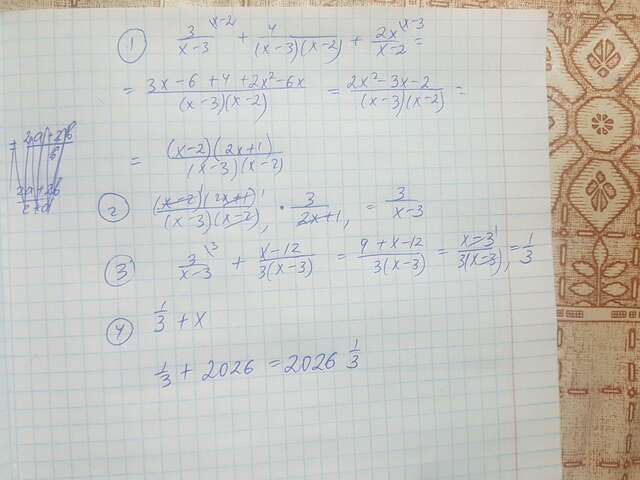 1) 3/(x-3) \x-2 + 4/((x-3)(x-2)) + 2x/(x-2) \x-3 =
= (3x-6+4+2x²-6x)/((x-3)(x-2)) = (2x²-3x-2)/((x-3)(x-2)) =
= ((x-2)(2x+1))/((x-3)(x-2))
2) ((x-2)¹(2x+1)¹)/((x-3)(x-2)₁) · 3/(2x+1)₁ = 3/(x-3)
3) 3/(x-3) \3 + (x-12)/(3(x-3)) = (9+x-12)/(3(x-3)) = (x-3)¹/(3(x-3)₁) = 1/3
4) 1/3 + x
1/3 + 2026 = 2026 1/3